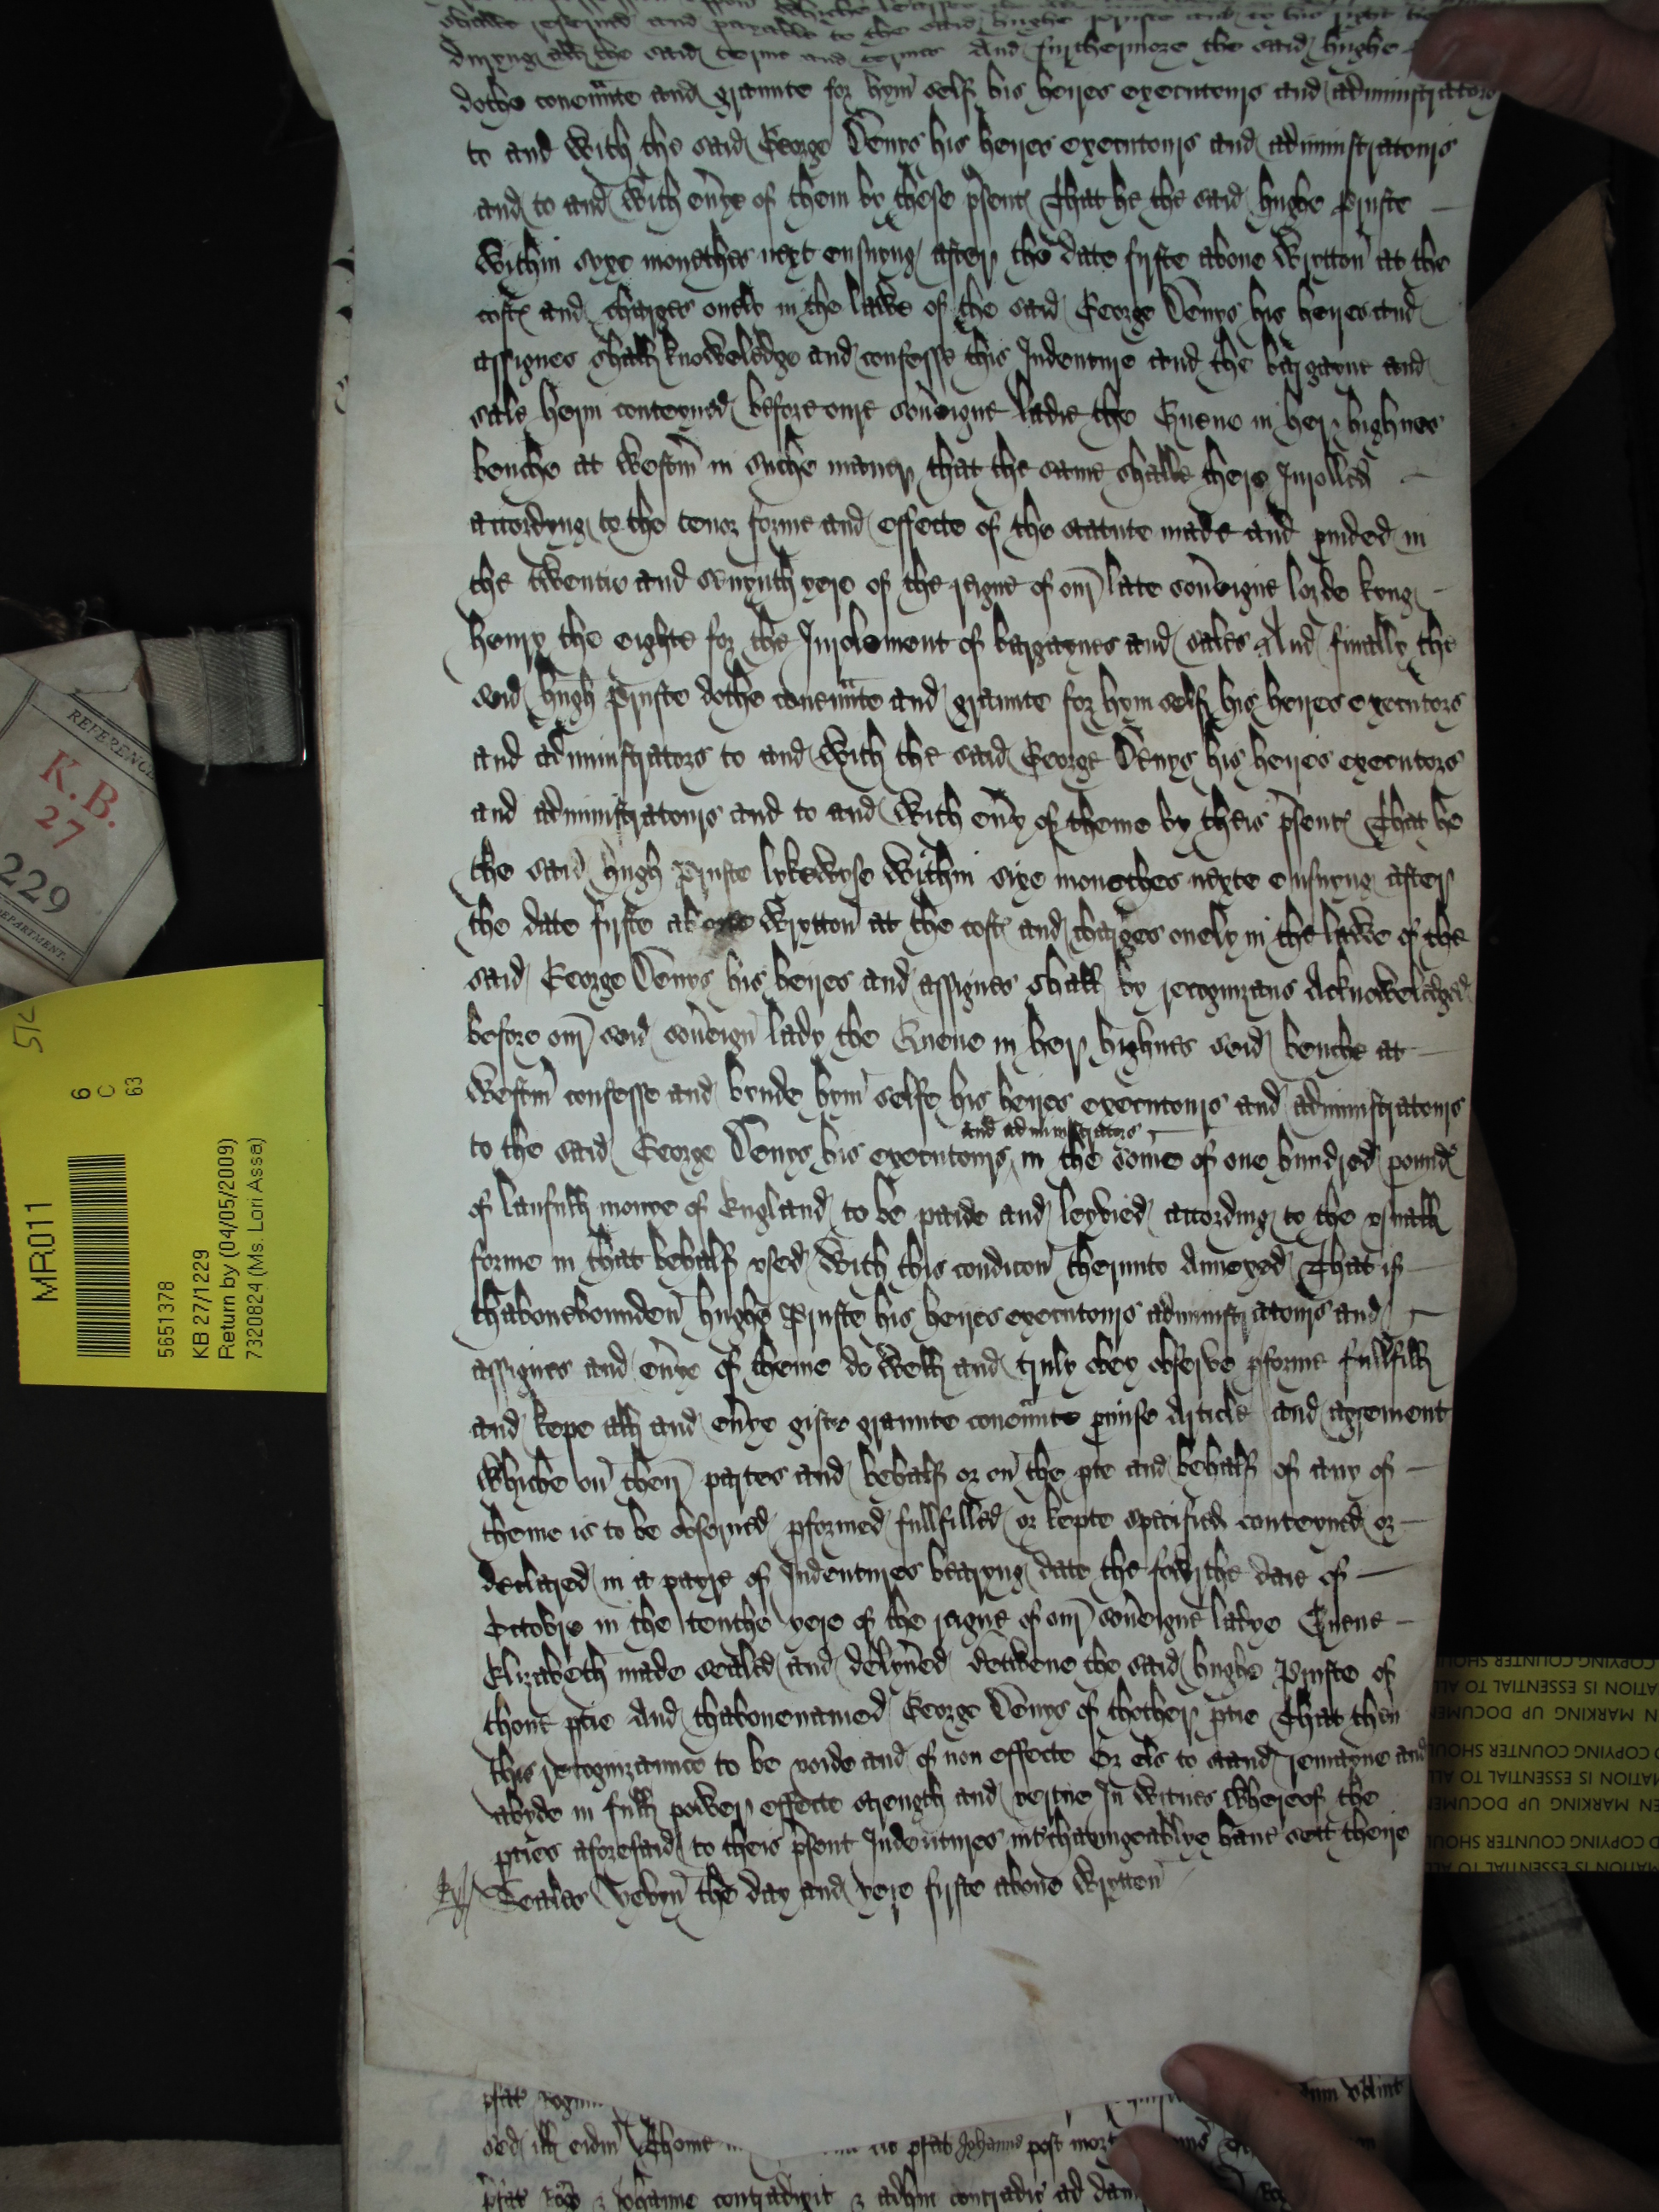 shalbe reserued and payable to the said hughe prufte and to his right
duryng all the said terme and termes And furthermore the said hughe
dothe coueñnte and graunte for hym self his heires executours and administrators
to and with the said George Denys his heires executours and administratours
and to and with eũye of them by these p̃sent℮ That he the said hughe Prufte
within syxe monethes next ensuyng after the date firste aboue Wrytton at the
cost℮ and charges onelie in the lawe of the said George Denys his heires and
assignes shall knoweledge and confesse this Indenture and the bargayne and
sale herin conteyned before oure soũeigne ladie the Quene in her highnes
benche at Westm̃ in suche maner that the same shalbe there Inrolled
accordyng to the tenor forme and effecte of the statute made and puided in
the twentie and Seuynth yere of the reigne of our̃ late soũeigne lorde kyng
henry the eighte for the Inrolement of bargaynes and sales And finally the
seid hugh Prufte dothe coueñnte and graunte for hym self his heires executors
and administrators to and with the said George Denys his heires executors
and administratours and to and with eũy of theme by theis p̃sent℮ That he
the said hugh Prufte lykewyse within sixe monethes nexte ensuyng after
the date firste aboue Wrytton at the cost℮ and charges onely in the lawe of the
said George Denys his heires and assignes shall by recognizans Acknoweledged
before our̃ seid soũeign lady the Quene in her highnes seid benche at
Westm̃ confesse and bynde hym selfe his heires executours and administratours
and administrators
to the said George Denys his executours in the some of one hundred pound℮
of laufull monye of England to be paide and leyvied according to the vsuall
forme in that behalf vsed With this condicoñ therunto Annexed That if
thabouebounden hughe Prufte his heires executours administratours and
assignes and eũye of theme do well and truly obey observe pforme fullfill
and kepe all and eũye gifte graunte coueñnte pmise Article and agrement
whiche on their̃ partes and behalf or on the pte and behalf of any of
theme is to be obserued pformed fullfilled or kepte specified conteyned or
declared in a payre of Indentures bearyng date the fowrthe daie of
Octobre in the tenthe yere of the reigne of our̃ soũeigne ladye Quene
Elizabeth made sealed and delyũed betwene the said hughe Prufte of
thone ptie And thabouenamed George Denys of thother ptie That then
this recognizaunce to be voide and of non effecte Or els to stand remayne and
abyde in full power effecte strength and vertue In witnes whereof the
pties aforesaid to theis p̃sent Indentures int̃chaungeablye haue sett theire
Seales Yevyn the day and yere firste aboue Wrytten
p̃fat
sed ill eidm̃ Thome p̃fat Johanne post mort
p̃fat Johanne contradixit & adhuc contradic ad dam
REFERENCE
K.B.
27
1229
DEPARTMENT.
MR011
6
C
63
5651378
KB 27/1229
Return by (04/05/2009)
7320824 (Ms. Lori Assa)
COPYING COUNTER SHOU
MATION IS ESSENTIAL TO ALL
EN MARKING UP DOCUMEN
D COPYING COUNTER SHOU
MATION IS ESSENTIAL TO ALL
EN MARKING UP DOCUMEN
D COPYING COUNTER SHOU
MATION IS ESSENTIAL TO ALL